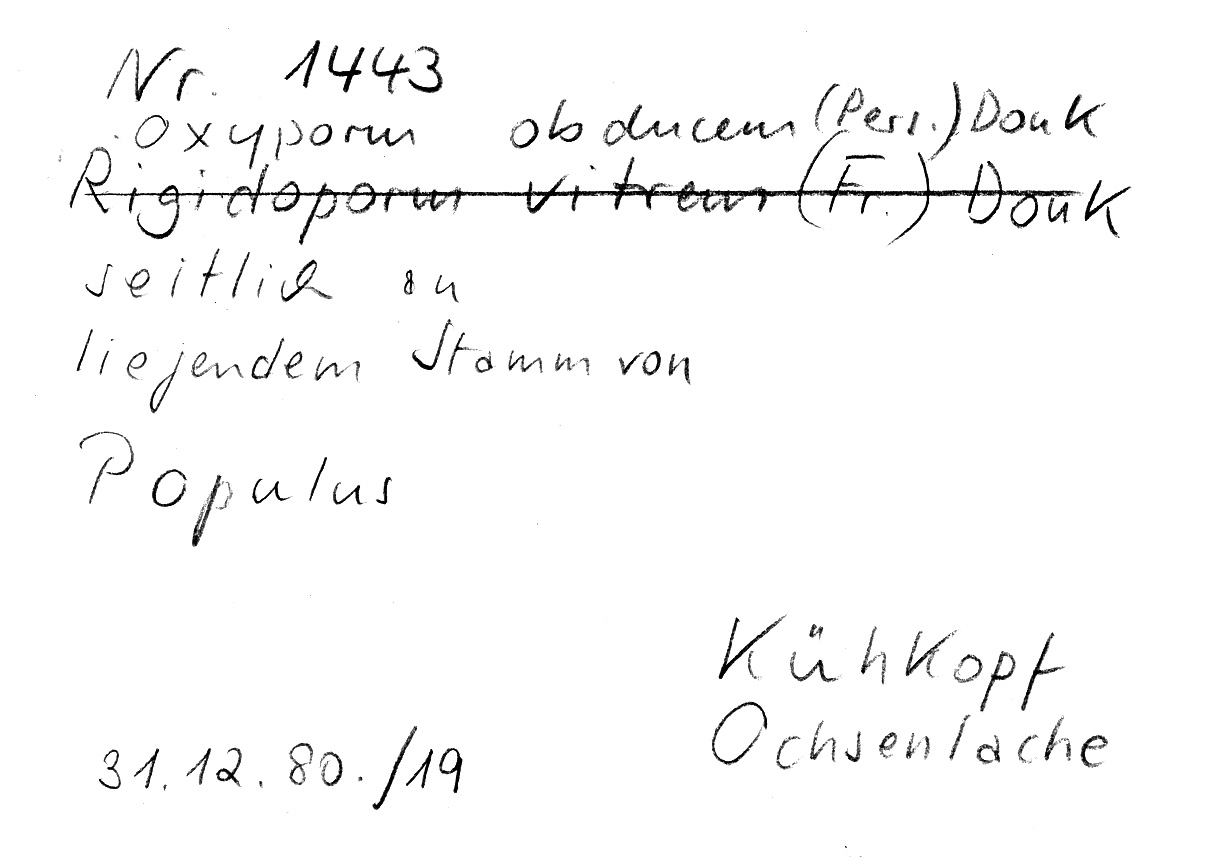 Nr. 1443
Oxyporus obducens (Pers.) Donk
Rigidoporus vitreus (Fr.) Donk
seitlich an
liegendem Stamm von
Populus
Kühkopf
Ochsenlache
31.12.80./19